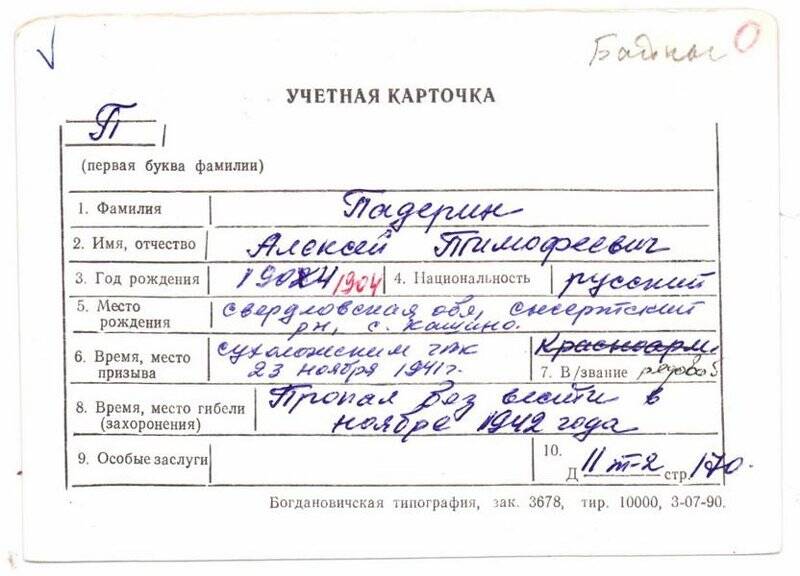 Байны О
УЧЕТНАЯ КАРТОЧКА
П
(первая буква фамилии)
1. Фамилия Падерин
2. Имя, отчество Алексей Тимофеевич
3. Год рождения 1904 1904 4. Национальность русский
5. Место рождения свердловская обл, сысертский
рн, с. Кашино.
6. Время, место призыва сухоложским гвк
23 ноября 1941г.
Красноарм
7. В/звание рядовой
8. Время, место гибели (захоронения) Пропал без вести в
ноябре 1942 года
9. Особые заслуги
10.
Д 11 т-2 стр. 170.
Богдановичская типография, зак. 3678, тир. 10000, 3-07-90.